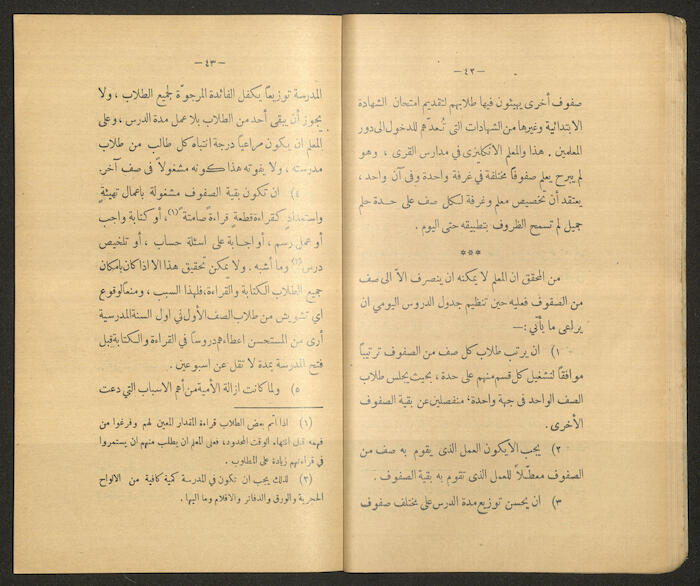 — ٤٢ —
صفوف أخرى يهيئون فيها طلابهم لتقديم امتحان الشهادة
الابتدائية وغيرها من الشهادات التى تُعدّهم للدخول الى دور
المعلمين . هذا والمعلم الانكليزى في مدارس القرى ، وهو
لم يبرح يعلم صفوفاً مختلفة في غرفة واحدة وفى آن واحد ،
يعتقد أن تخصيص معلم وغرفة لكل صف على حدة حلم
جميل لم تسمح الظروف بتطبيقه حتى اليوم .
***
من المحقق ان المعلم لا يمكنه ان ينصرف الاّ الى صف
من الصفوف فعليه حين تنظيم جدول الدروس اليومي ان
يراعى ما يأتي :—
١) ان يرتب طلاب كل صف من الصفوف ترتيباً
موافقاً لتشغيل كل قسم منهم على حدة ، بحيث يجلس طلاب
الصف الواحد في جهة واحدة؛ منفصلين عن بقية الصفوف
الأخرى .
٢) يجب الا يكون العمل الذى يقوم به صف من
الصفوف معطّلاً للعمل الذى تقوم به بقية الصفوف .
٣) ان يحسن توزيع مدة الدرس على مختلف صفوف
— ٤٣ —
المدرسة توزيعاً يكفل الفائدة المرجوّة لجميع الطلاب ، ولا
يجوز أن يبقى أحد من الطلاب بلا عمل مدة الدرس ، وعلى
المعلم ان يكون مراعياً درجة انتباه كل طالب من طلاب
مدرسته ، ولا يفوته هذا كونه مشغولاً فى صف آخر.
٤) ان تكون بقية الصفوف مشغولة باعمال تهيئةٍ
واستعدادٍ كقراءة قطعةٍ قراءةً صامتة (١)، أو كتابة واجب
أو عمل رسم ، أو اجابة على اسئلة حساب ، أو تلخيص
درس (٢) وما أشبه . ولا يمكن تحقيق هذا الا اذا كان بامكان
جميع الطلاب الكتابة والقراءة، فلهذا السبب ، ومنعاً لوقوع
اي تشويش من طلاب الصف الأول في اول السنة المدرسية
أرى من المستحسن اعطاءهم دروساً في القراءة والكتابة قبل
فتح المدرسة بمدة لا تقل عن اسبوعين .
٥) ولما كانت ازالة الأمية من أهم الاسباب التي دعت
(١) اذا أتم بعض الطلاب قراءة المقدار المعين لهم وفرغوا من
فهمه قبل انتهاء الوقت المحدود، فعلى المعلم ان يطلب منهم ان يستمروا
في قراءتهم زيادة على المطلوب .
(٢) لذلك يجب ان تكون في المدرسة كمية كافية من الالواح
الحجرية والورق والدفاتر والاقلام وما اليها .